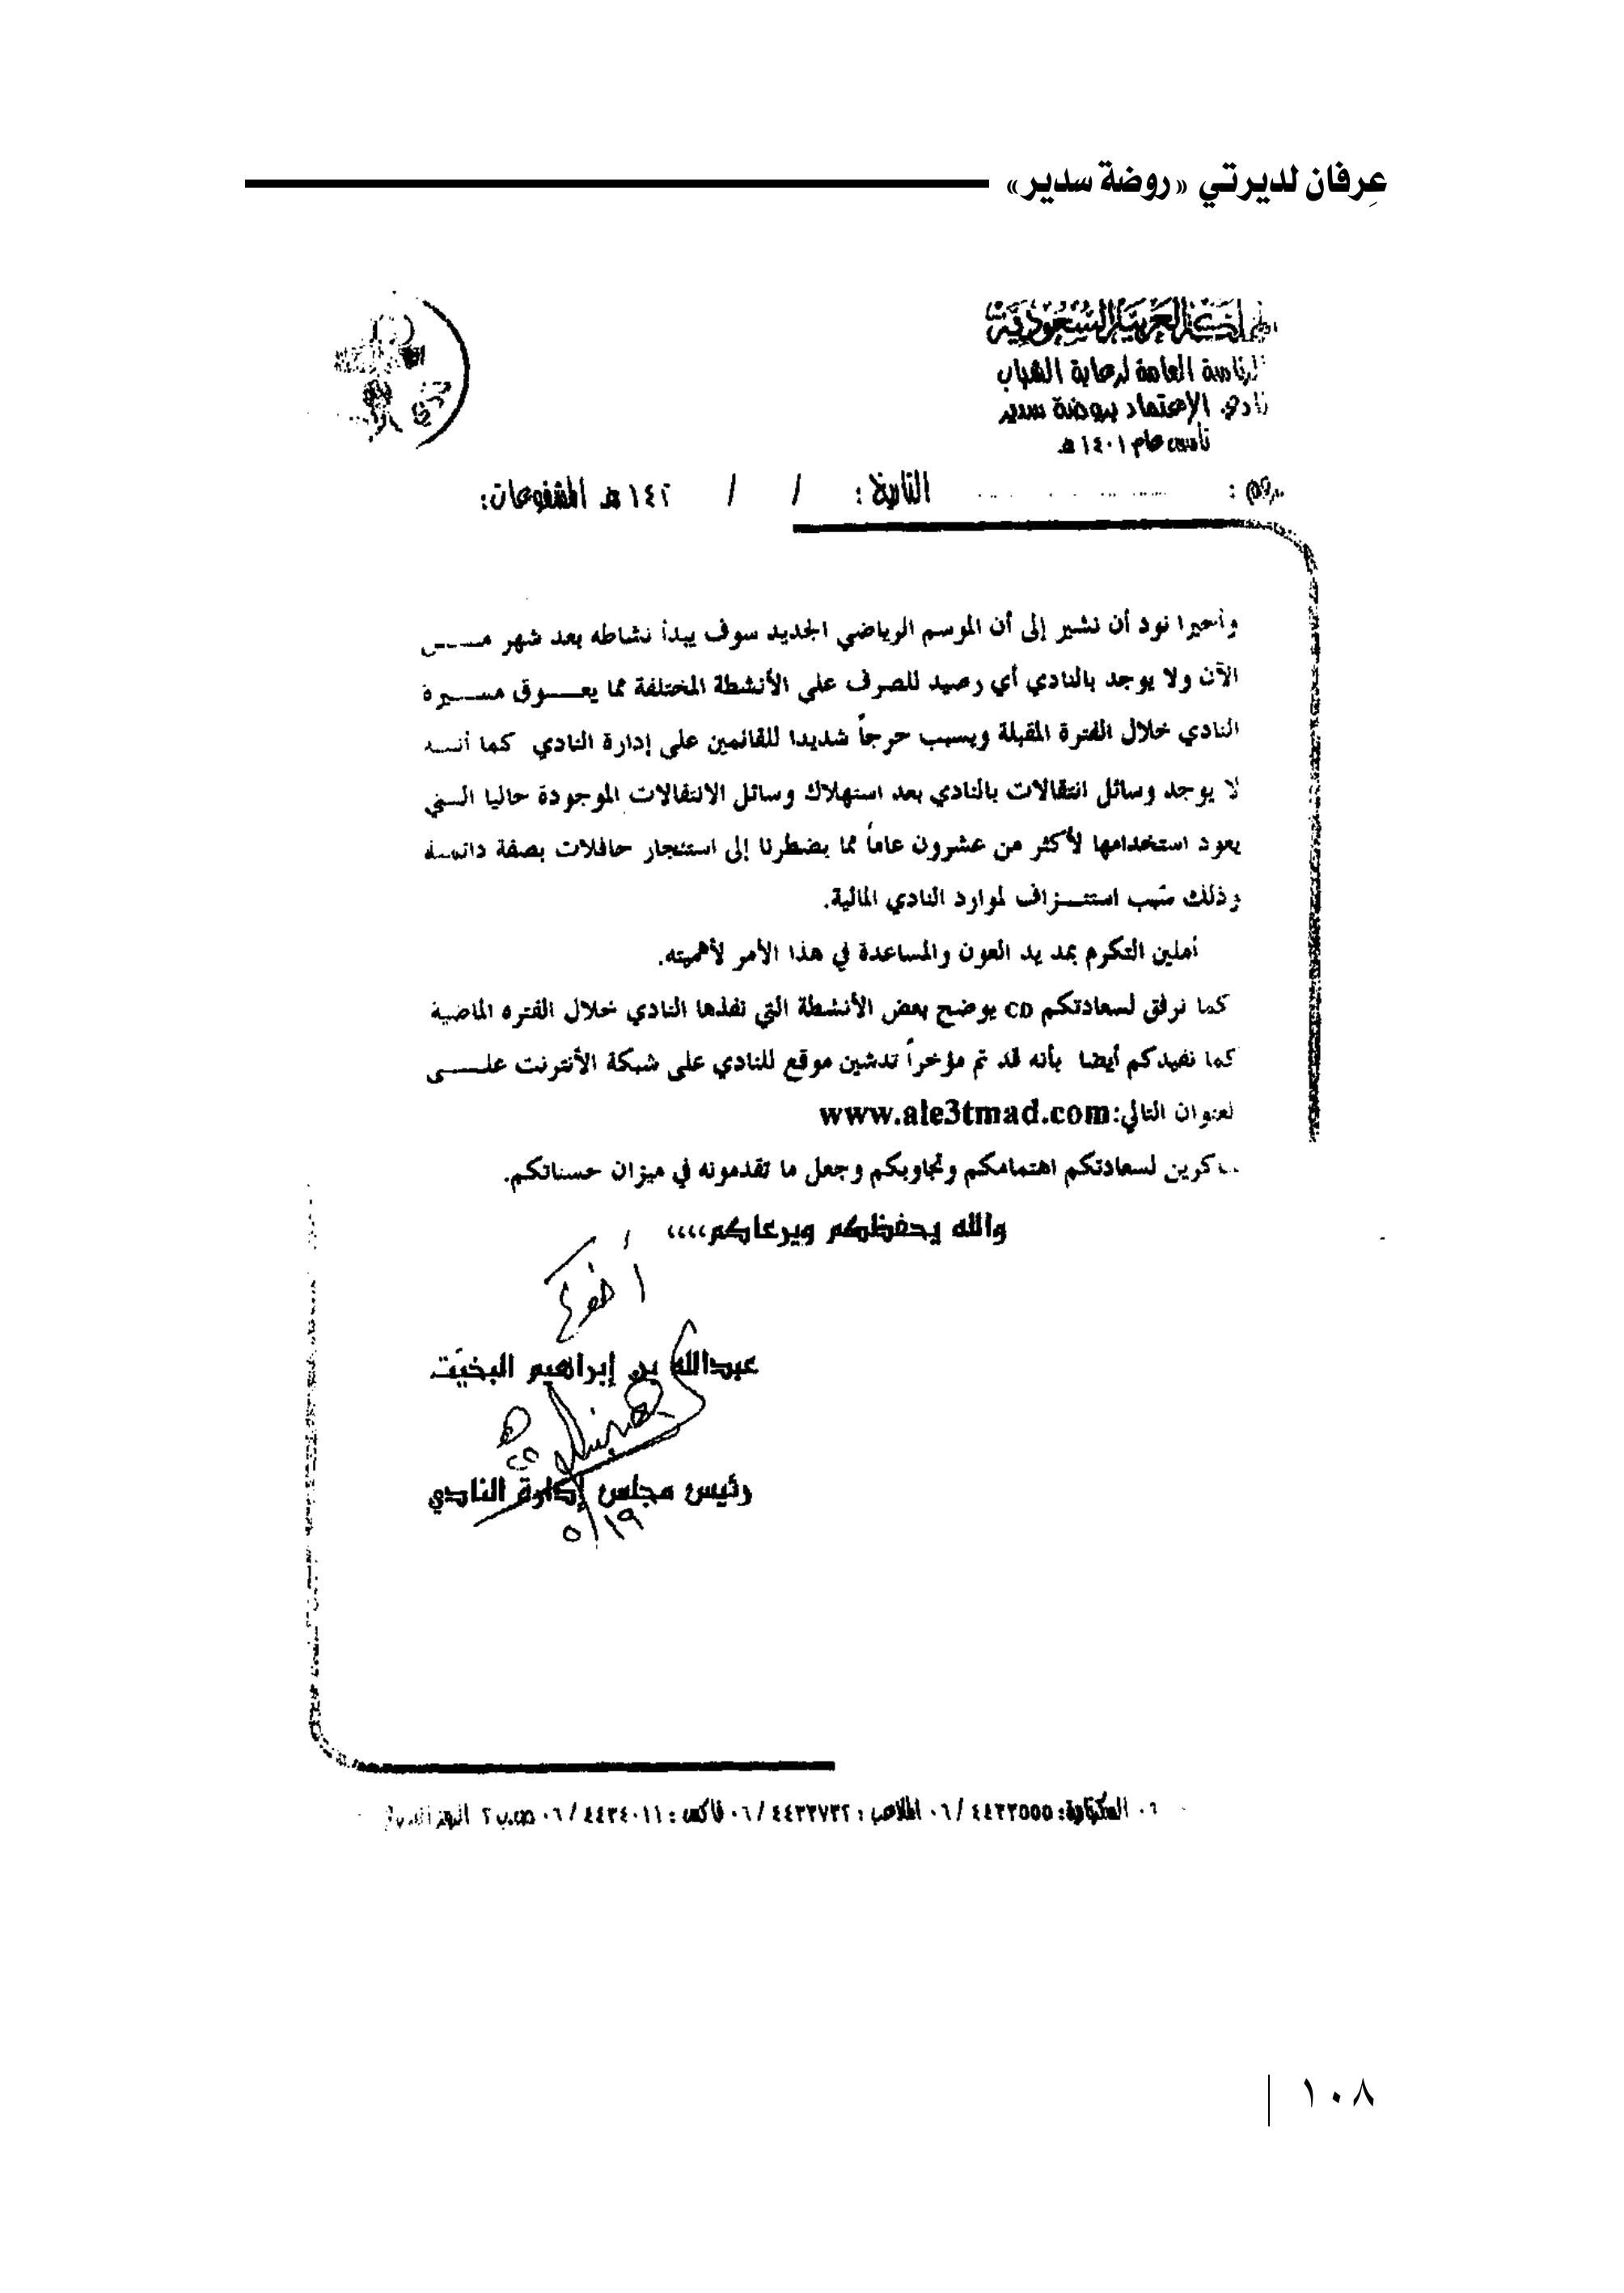 عِرفان لديرتي «روضة سدير»
المملكة العربية السعودية
الرئاسة العامة لرعاية الشباب
نادي الإعتماد بروضة سدير
تأسس عام ١٤٠١ هـ
التاريخ: / / ١٤٢ هـ المشفوعات:
وأخيرا نود أن نشير إلى أن الموسم الرياضي الجديد سوف يبدأ نشاطه بعد شهر مـــن
الآن ولا يوجد بالنادي أي رصيد للصرف على الأنشطة المختلفة مما يعـــوق مســـيرة
النادي خلال الفترة المقبلة ويسبب حرجاً شديدا للقائمين على إدارة النادي كما أنـــه
لا يوجد وسائل انتقالات بالنادي بعد استهلاك وسائل الانتقالات الموجودة حاليا الـــتي
يعود استخدامها لأكثر من عشرون عاماً مما يضطرنا إلى استئجار حافلات بصفة دائمـــة
وذلك سّبب استنـــزاف لموارد النادي المالية.
أملين التكرم بمد يد العون والمساعدة في هذا الأمر لأهميته.
كما نرفق لسعادتكم CD يوضح بعض الأنشطة التي نفذها النادي خلال الفتره الماضية
كما نفيدكم أيضا بأنه قد تم مؤخراً تدشين موقع للنادي على شبكة الأنترنت علـــى
لعنوان التالي:www.ale3tmad.com
كرين لسعادتكم اهتمامكم وتجاوبكم وجعل ما تقدمونه في ميزان حسناتكم.
والله يحفظكم ويرعاكم،،،،
أخوكم
عبدالله بن إبراهيم البخيّت
رئيس مجلس إدارة النادي
٥/١٩
٠٦ السكرتارية: ٤٤٣٢٥٥٥ /٠٦ الملاعب: ٤٤٣٢٧٣٢ /٠٦ فاكس: ٤٤٣٤٠١١ /٠٦ ص.ب ٢
١٠٨